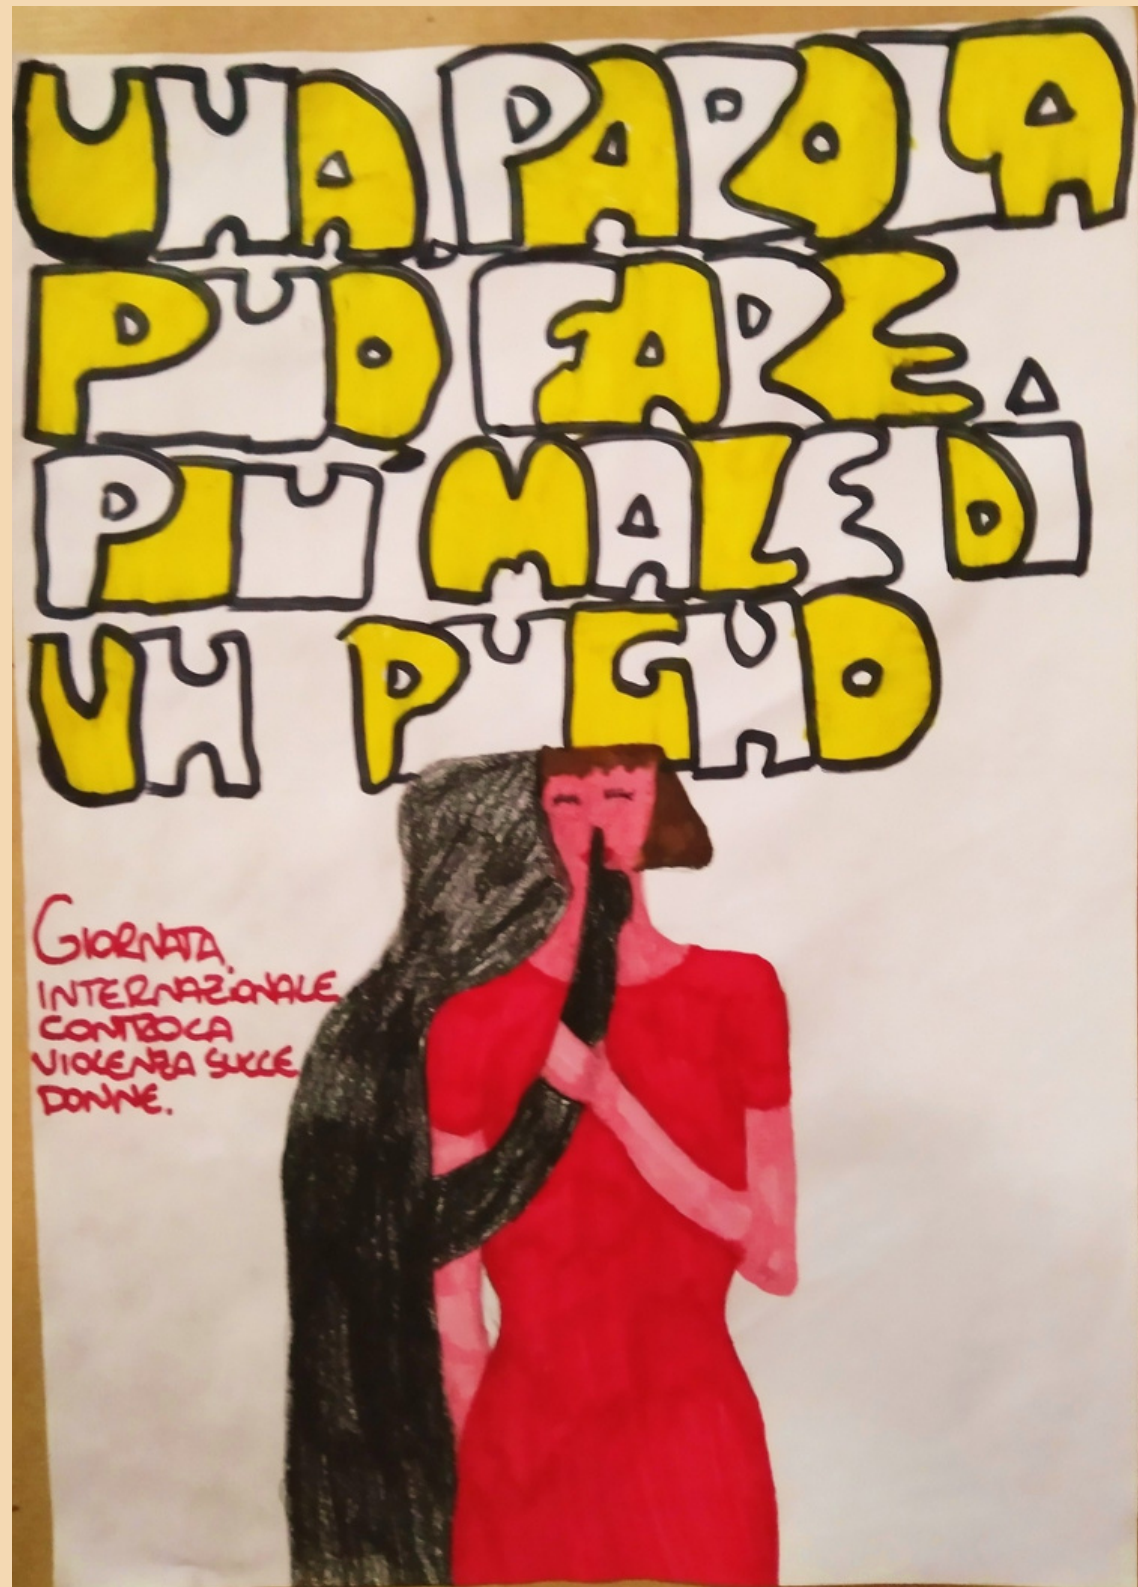 UNA PAROLA
PUO FARE
PIU MALE DI
UN PUGNO
GIORNATA
INTERNAZIONALE
CONTRO LA
VIOLENZA SULLE
DONNE.